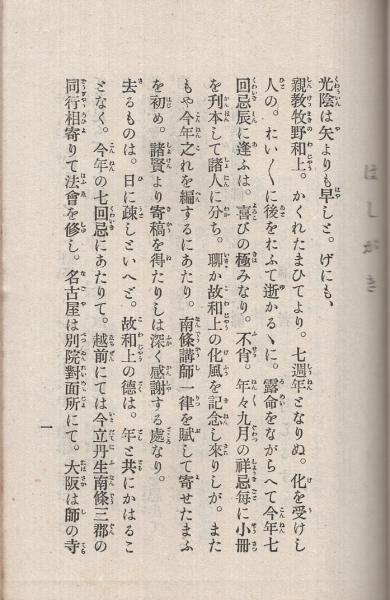 光陰は矢よりも早しと。げにも、
親教牧野和上。かくれたまひてより。七週年となりぬ。化を受けし
人の。たい〳〵に後をおふて逝かるゝに。露命をながらへて今年七
回忌辰に逢ふは。喜びの極みなり。不肖。年々九月の祥忌毎に小冊
を刋本して諸人に分ち。聊か故和上の化風を記念し來りしが。また
もや今年之れを編するにあたり。南條講師一律を賦して寄せたまふ
を初め。諸賢より寄稿を得たりしは深く感謝する處なり。
去るものは。日に疎しといへど。故和上の德は。年と共にかはるこ
となく。今年の七回忌にあたりて。越前にては今立丹生南條三郡の
同行相寄りて法會を修し。名古屋は別院對面所にて。大阪は師の寺
一
はしがき